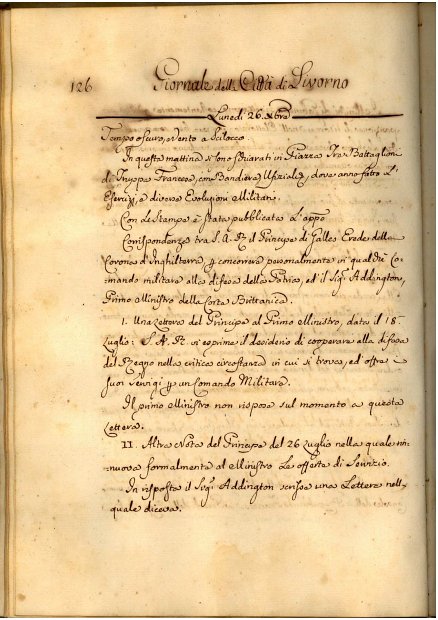 126 Giornale della Città di Livorno
Lunedì 26. Xbre
Tempo oscuro, vento a Scilocco.
In questa mattina si sono schiarati in Piazza Tre Battaglioni
di Truppa Francese, con Bandiera Ufiziali, dove anno fatto l'
Esercizi, e diverse Evoluzioni Militari.
Con le Stampe è stata pubblicata l'app.
Corrispondenza tra S. A. R. il Principe di Galles Erede della
Corona d'Inghilterra, concorrere personalmente in qualche Co-
mando militare alla difesa della Patria, ed il Sigr. Addington,
Primo Ministro della Corte Brittanica.
I. Una Lettera del Principe al Primo Ministro, data il 18
Luglio: S. A. R. vi esprime il desiderio di cooperare alla difesa
del Regno nella critica circostanza in cui si trova, ed offre i
suoi servigi un Comando Militare.
Il primo Ministro non rispose sul momento a questa
Lettera.
II. Altra Nota del Principe del 26 Luglio nella quale rin-
nuova formalmente al Ministro le offerte di Servizio.
In risposta il Sigr. Addington scrisse una Lettera nella
quale diceva.